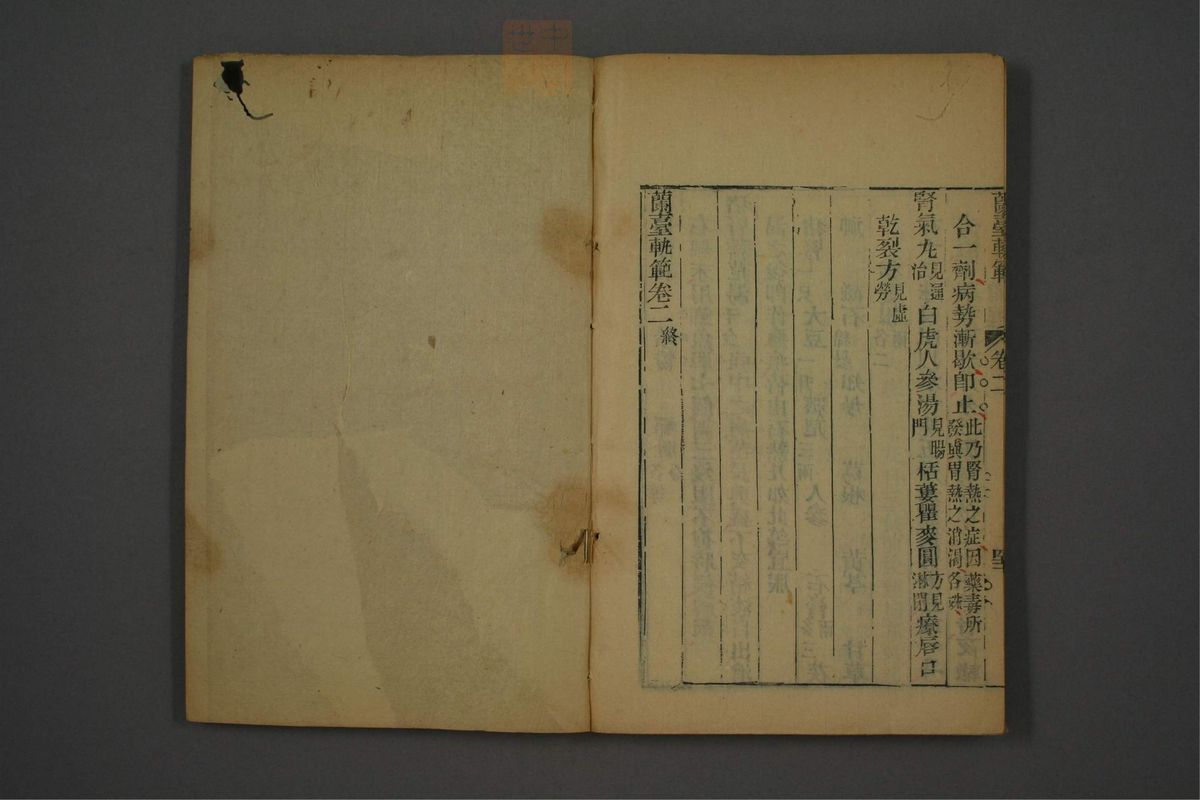 蘭臺軌範 卷二
合一劑病勢漸歇卽止此乃腎熱之症因藥毒所發與胃熱之消渴各殊
腎氣丸見通治白虎人參湯見暍門栝蔞瞿麥圓方見淋閉療唇口
乾裂方見虛勞
蘭臺軌範卷二終